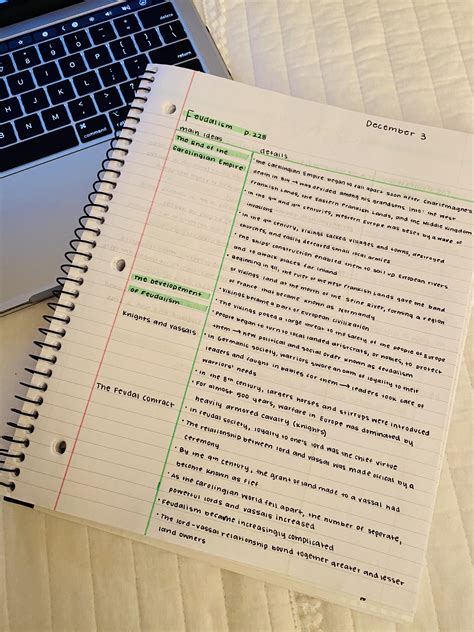 December 3
Feudalism p. 228
main ideas
details
The End of the
Carolingian Empire
• The Carolingian Empire began to fall apart soon after Charlemagne's
death in 814 → was divided among his grandsons into: the west
Frankish Lands, the Eastern Frankish Lands, and the Middle Kingdom
• In the 9th and 10th centuries, western Europe was beset by a wave of
invasions
• In the 9th century, Vikings sacked villages and towns, destroyed
churches, and easily defeated small local armies
• The ships' construction enabled them to sail up European rivers
and to attack places far inland
• Beginning in 911, the ruler of the west Frankish Lands gave one band
of Vikings land at the mouth of the Seine River, forming a region
of France that became known as Normandy
• Vikings became a part of European civilization
The Development
of Feudalism
• The Vikings posed a large threat to the safety of the people of Europe
• People began to turn to local landed aristocrats, or nobles, to protect
them → new political and social order known as feudalism
Knights and vassals
• In Germanic society, warriors swore an oath of loyalty to their
leaders and fought in battles for them → leaders took care of
warriors' needs
• In the 8th century, larger horses and stirrups were introduced
• For almost 500 years, warfare in Europe was dominated by
heavily armored cavalry (knights)
The Feudal Contract
• In feudal society, loyalty to one's lord was the chief virtue
• The relationship between lord and vassal was made official by a
ceremony
• By the 9th century, the grant of land made to a vassal had
become known as fief
• As the Carolingian world fell apart, the number of seperate,
powerful lords and vassals increased
• Feudalism became increasingly complicated
• The lord-vassal relationship bound together greater and lesser
land owners